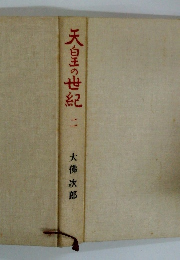 天皇の世紀
一
大佛次郎